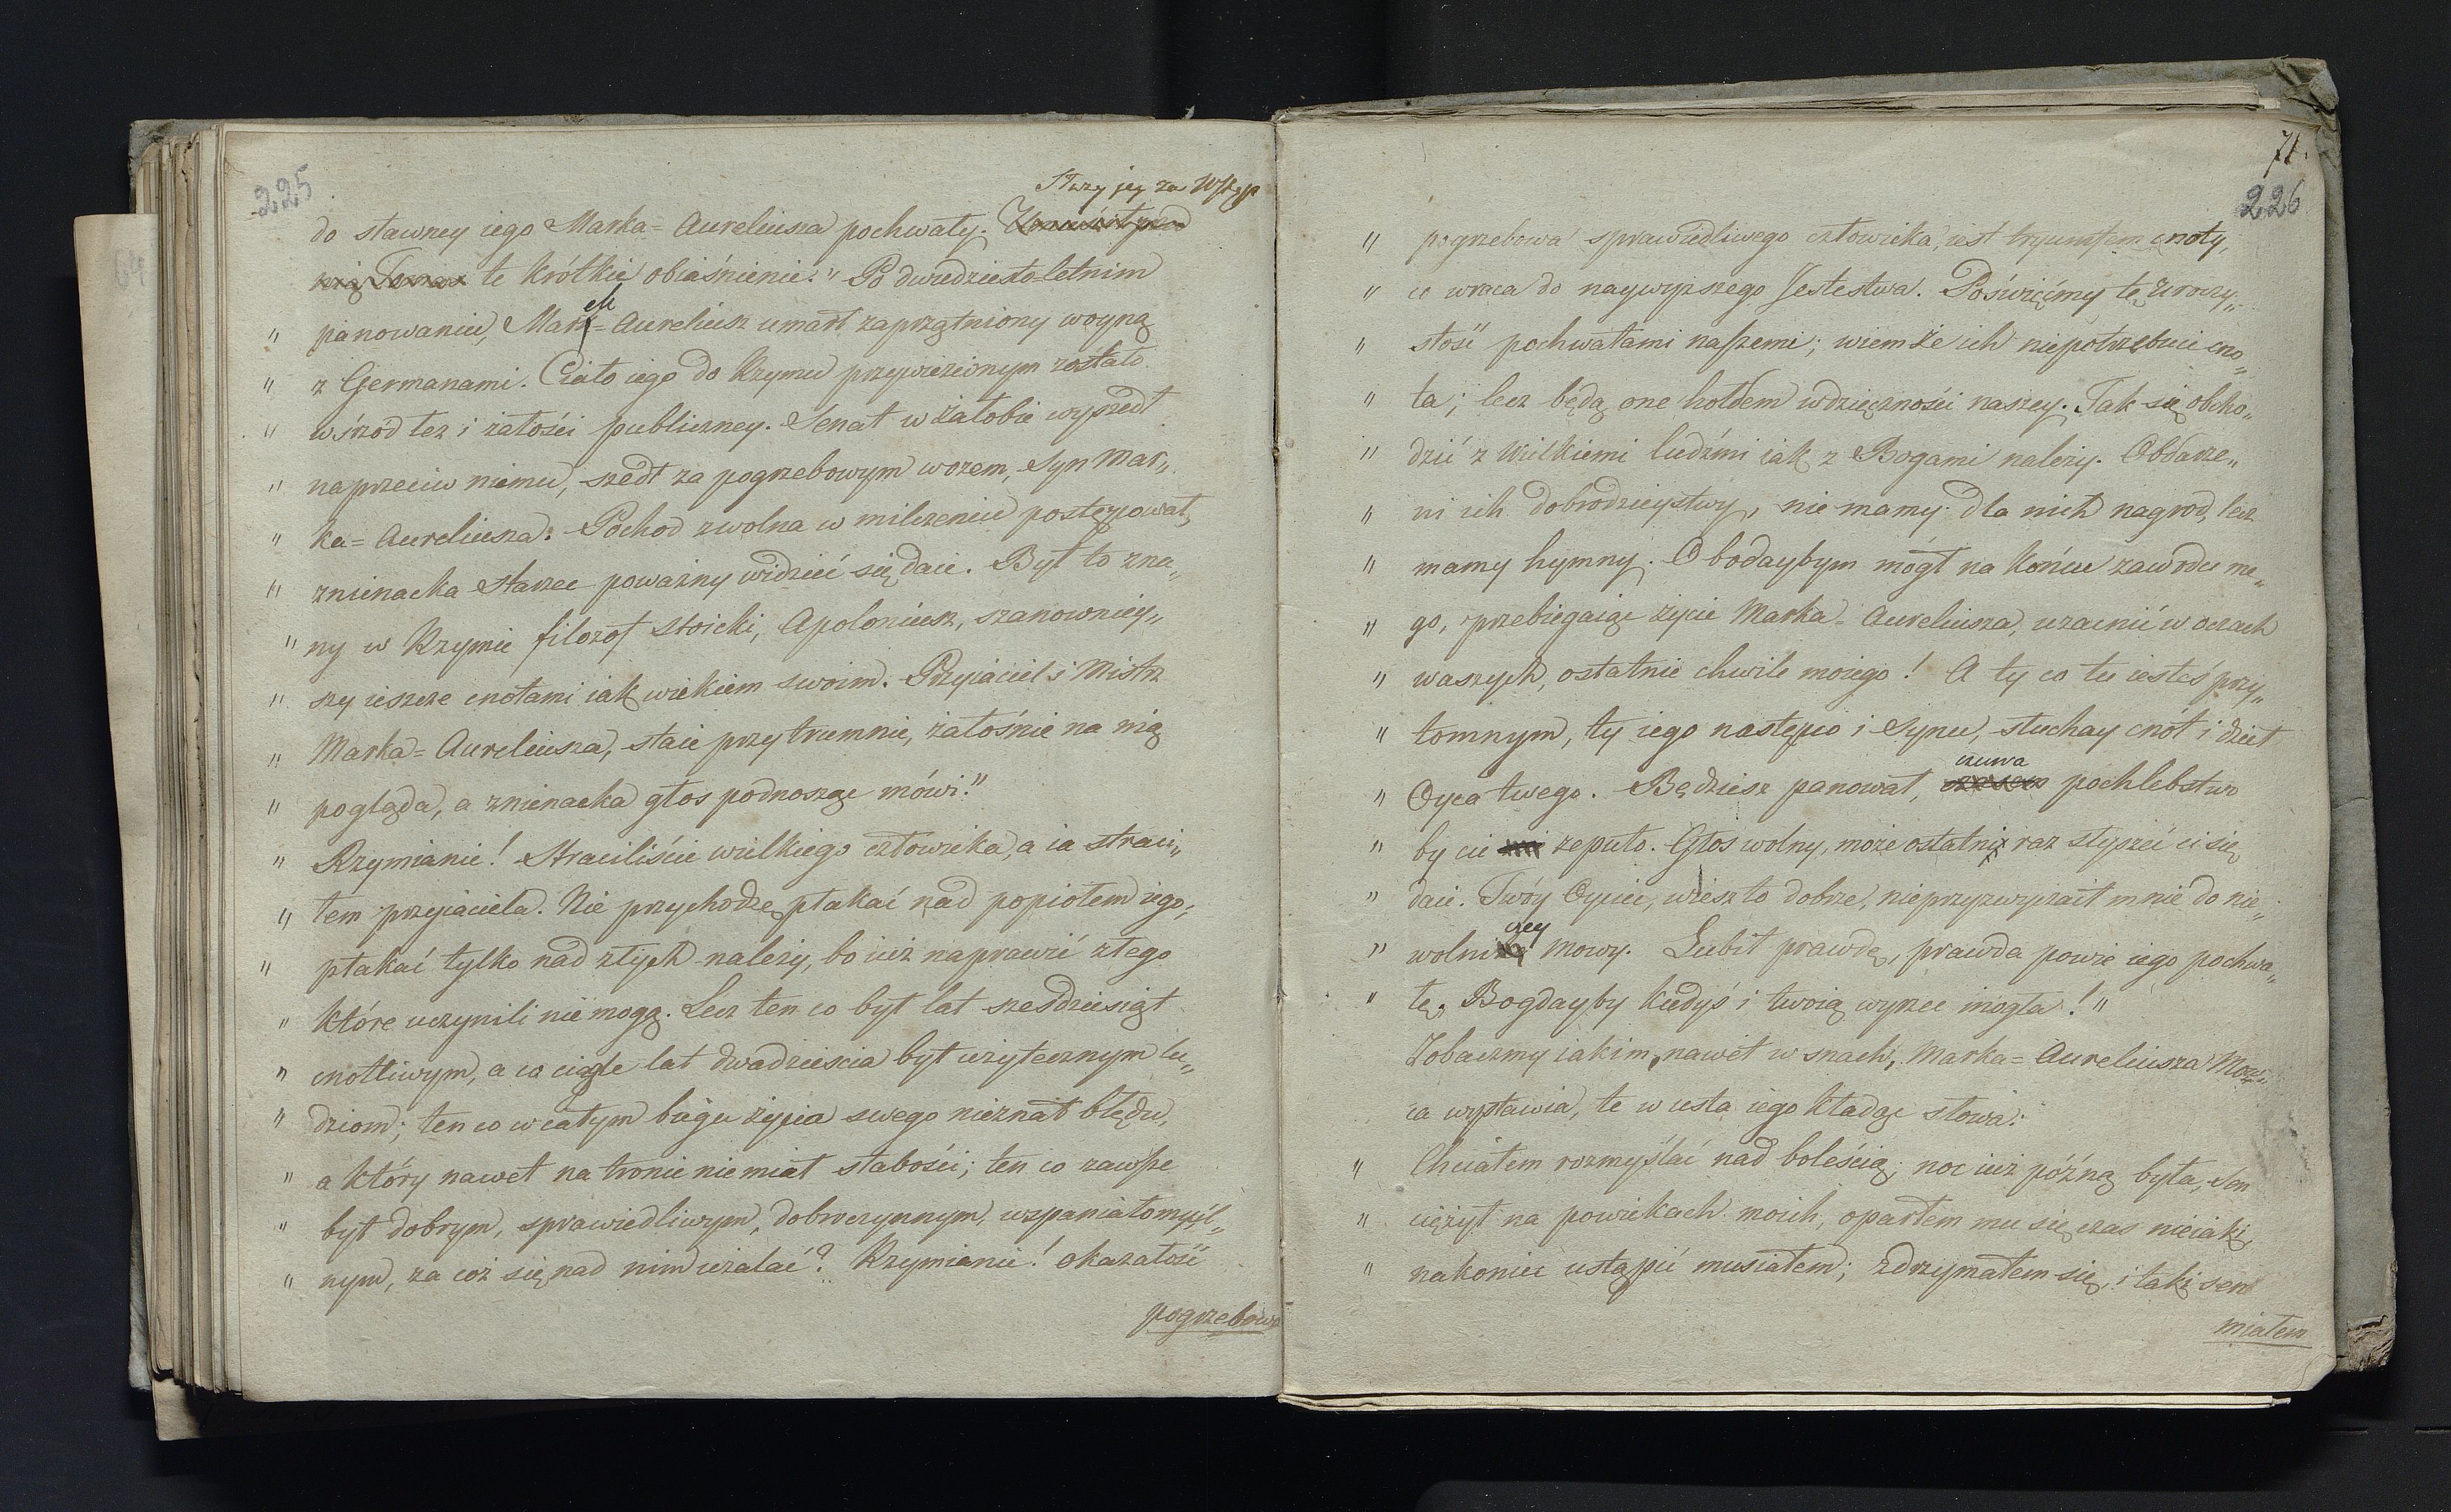 225
Służy jej za Wstęp
do sławney iego Marka=Aureliusza pochwały.
te krótkie obiaśnienie. " Po dwudziesto-letnim
" panowaniu, Marek=Aureliusz umarł zaprzątniony woyną
" z Germanami. Ciało iego do Rzymu przywiezionym zostało
" wśrzod łez i żałości publiczney. Senat w żałobie wyszedł
" naprzeciw niemu, szedł za pogrzebowym wozem, Syn Mar„
" ka=Aureliusza. Pochod zwolna w milczeniu postępował,
" znienacka starzec poważny widzieć się daie. Był to zna„
" ny w Rzymie filozof stoicki, Apoloniusz, szanowniey„
" szy ieszcze cnotami iak wiekiem swoim. Przyiaciel i Mistrz
" Marka=Aureliusza, staie przy trumnie, żałośnie na nią
" pogląda, a znienacka głos podnosząc mówi."
" Rzymianie! Straciliście wielkiego człowieka, a ia straci„
" łem przyiaciela. Nie przychodzę płakać nad popiołem iego;
" płakać tylko nad złych należy, bo iuż naprawić złego
" które uczynili nie mogą. Lecz ten co był lat sześdziesiąt
" cnotliwym, a co ciągle lat dwadzieścia był użytecznym lu„
" dziom; ten co w całym biegu życia swego nieznał błędu,
" a który nawet na tronie niemiał słabości; ten co zawsze
" był dobrym, sprawiedliwym, dobroczynnym, wspaniałomyśl„
" nym, za coż się nad nim użalać? Rzymianie! okazałość
pogrzebowa
71.
226
" pogrzebowa sprawiedliwego człowieka, iest tryumfem cnoty,
" co wraca do naywyższego Jestestwa. Poświęćmy tę uroczy„
" stość pochwałami naszemi; wiem że ich niepotrzebuie cno„
" ta; lecz będą one hołdem wdzięczności naszey. Tak się obcho„
" dzić z Wielkiemi ludźmi iak z Bogami należy. Obdarze„
" ni ich dobrodzieystwy, nie mamy dla nich nagrod, lecz
" mamy hymny. O bodaybym mógł na końcu zawodu me„
" go, przebiegaiąc życie Marka=Aureliusza, uzacnić w oczach
" waszych, ostatnie chwile moiego! A ty co tu iesteś przy„
" tomnym, ty iego następco i Synu, słuchay cnót i dzieł
" Oyca twego. Będziesz panował, czuwa pochlebstwo
" by cie zepsuło. Głos wolny, może ostatni raz słyszeć ci się
" daie. Twóy Oyciec, wiesz to dobrze, nieprzyzwyczaił mnie do nie„
" wolniczey mowy. Lubił prawdę, prawda powie iego pochwa„
" łę. Bogdayby kiedyś i twoią wyrzec mogła! "
Zobaczmy iakim, nawet w snach, Marka=Aureliusza Mow„
ca wystawia, te w usta iego kładąc słowa:
" Chciałem rozmyślać nad boleścią; noc iuż późną była, Sen
" ciężył na powiekach moich, oparłem mu się czas nieiaki,
" nakoniec ustąpić musiałem; zdrzymałem się, i taki sen
miałem